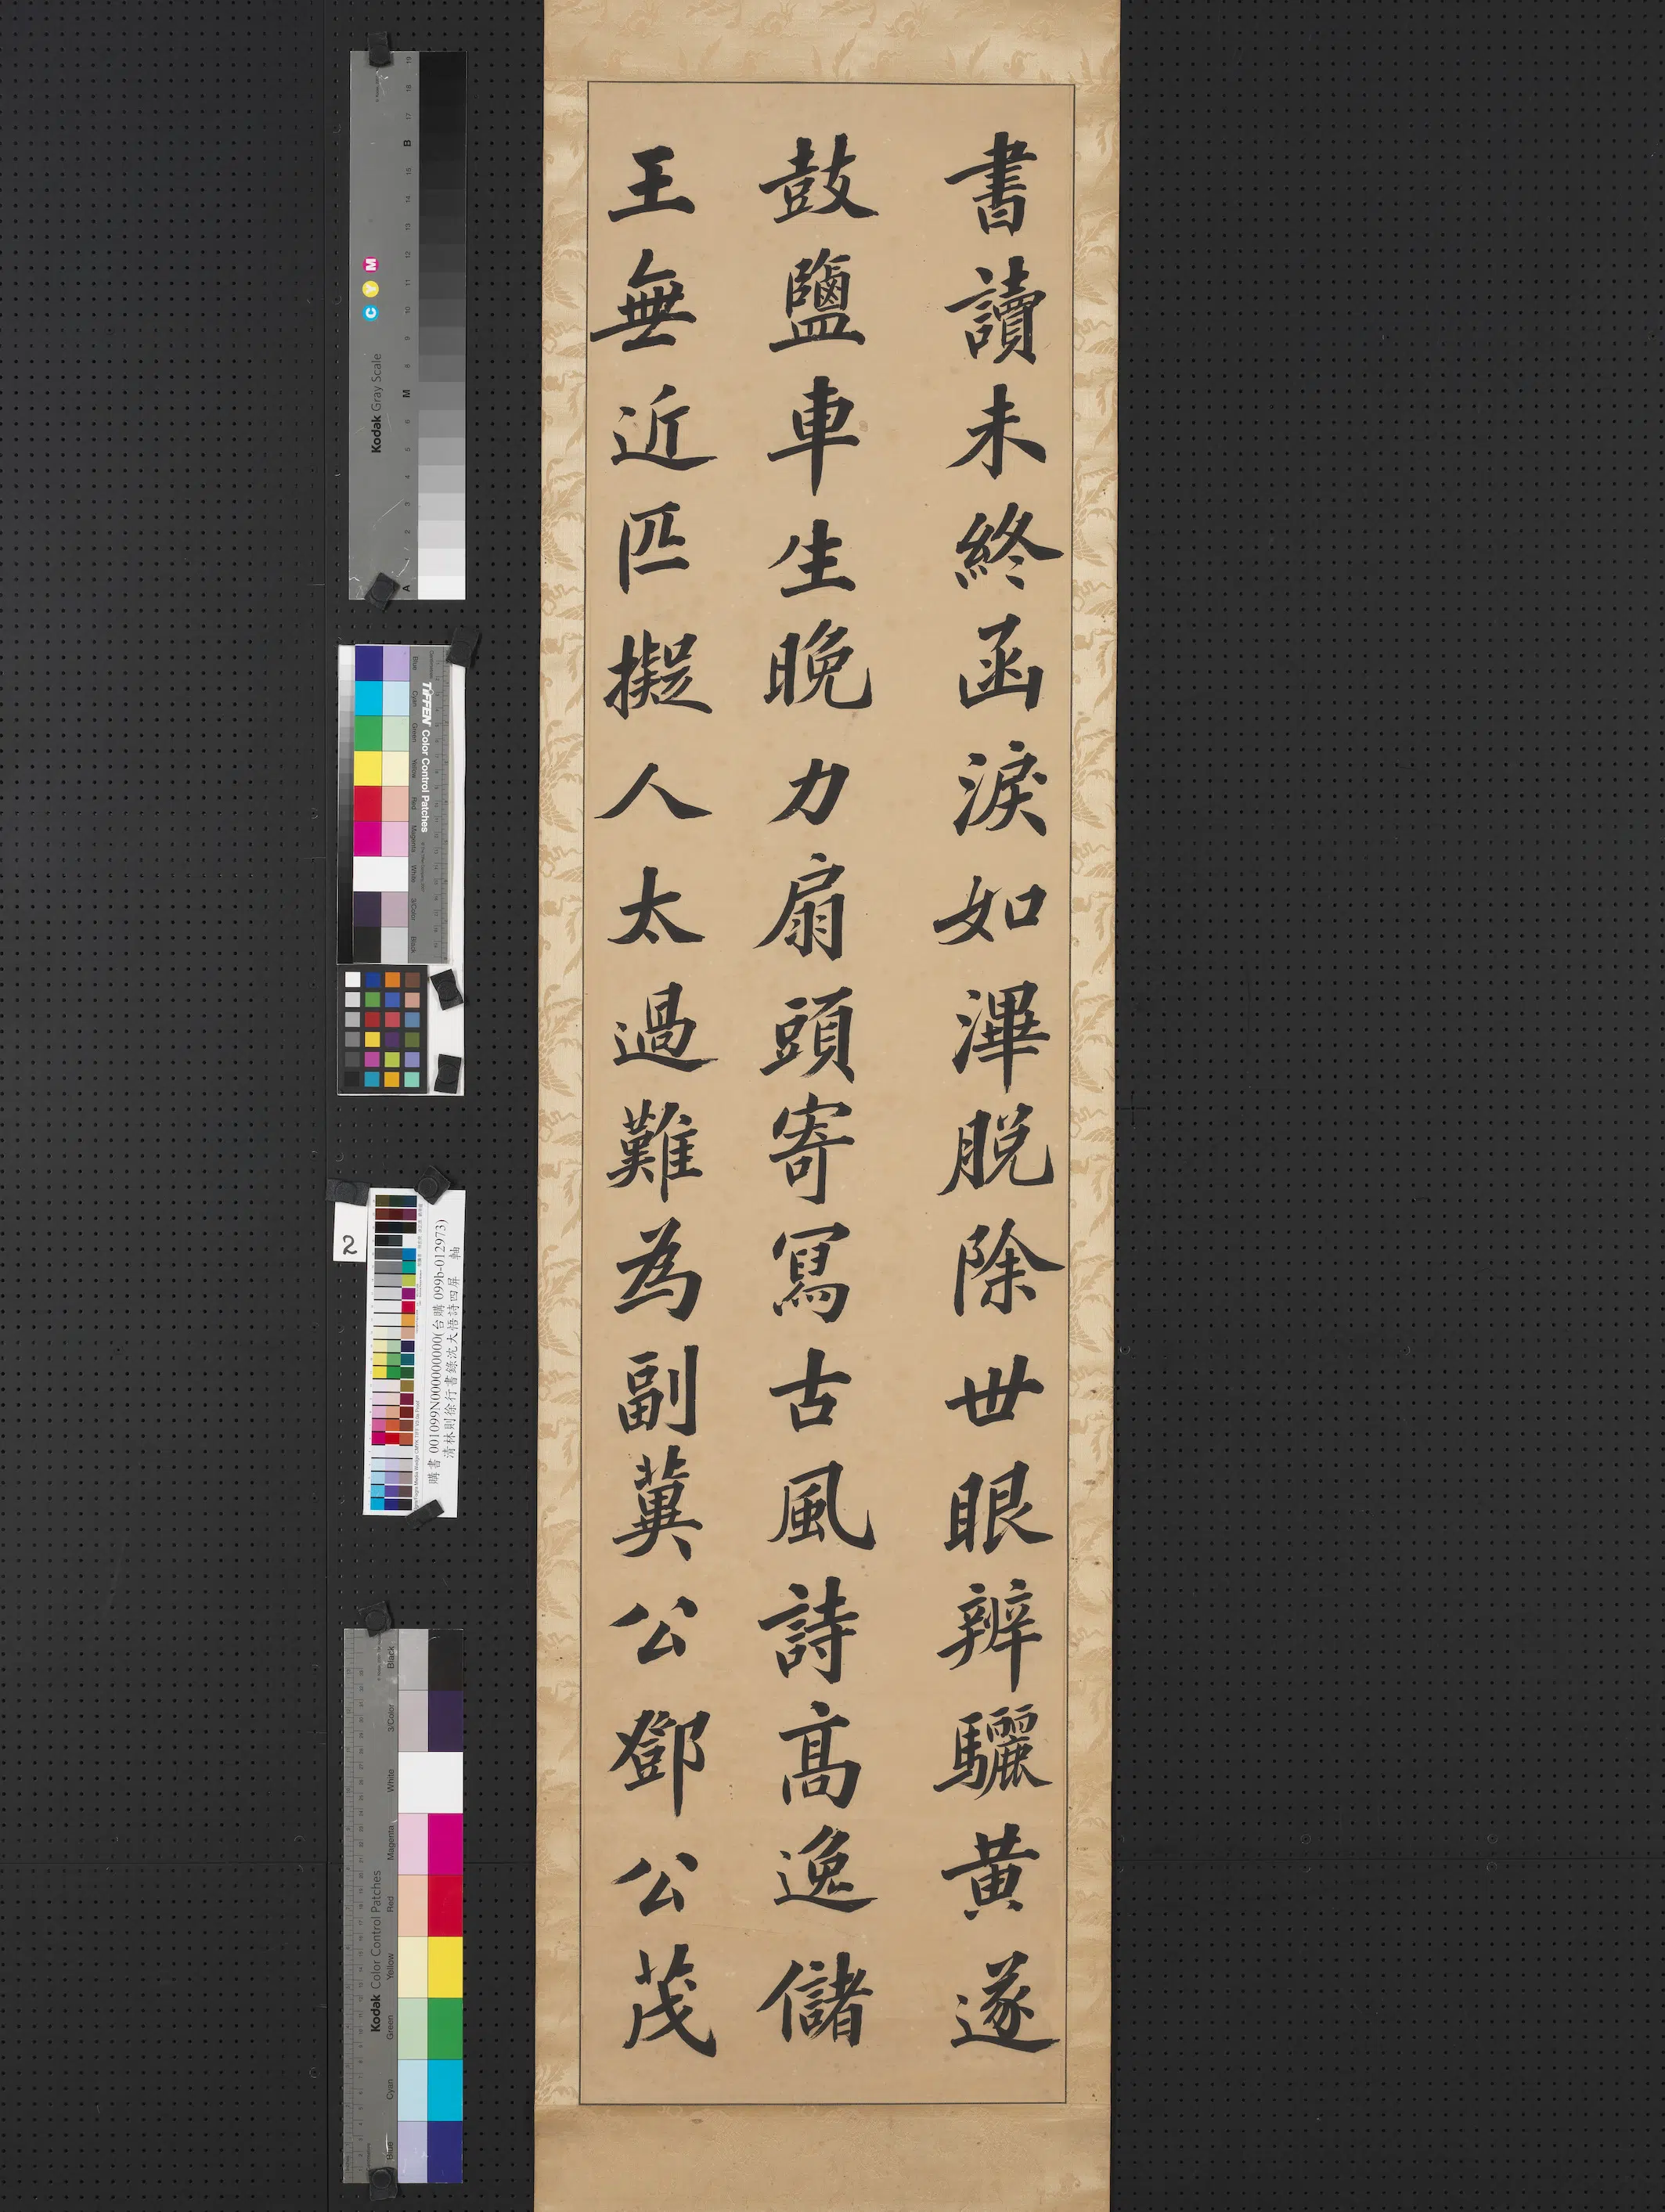 書讀未終函淚如渾脫除世眼辨驪黃遂
鼓鹽車生晚力扇頭寄寫古風詩高逸儲
王無近匹擬人太過難為副冀公鄧公茂
Kodak Gray Scale
C Y M
A
M
B
TIFFEN Color Control Patches
Blue
Cyan
Green
Yellow
Red
Magenta
White
3/Color
Black
2
購書 001099N000000000(台購 099b-012973)
清林則徐行書錄沈大悟詩四屏 軸
Kodak Color Control Patches
Blue
Cyan
Green
Yellow
Red
Magenta
White
3/Color
Black